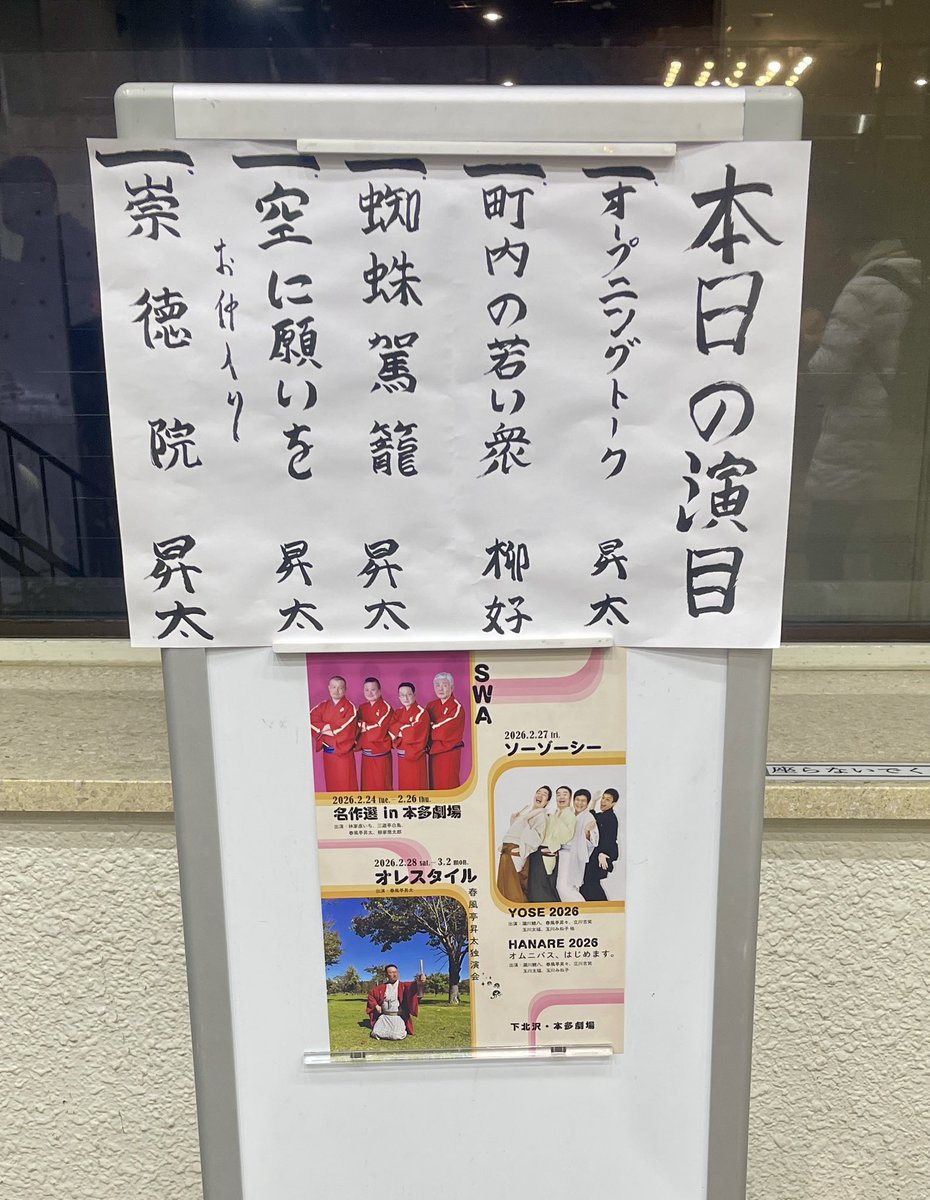 本日の演目
一、オープニングトーク 昇太
一、町内の若い衆 柳好
一、蜘蛛駕籠 昇太
一、空に願いを 昇太
お仲入り
一、崇徳院 昇太
SWA
2026.2.24 tue.–2.26 thu.
名作選 in 本多劇場
出演:林家彦いち、三遊亭白鳥、
春風亭昇太、柳家喬太郎
2026.2.27 fri.
ソーゾーシー
YOSE 2026
出演:瀧川鯉八、春風亭昇々、立川吉笑
玉川太福、玉川みね子 他
HANARE 2026
オムニバス、はじめます。
出演:瀧川鯉八、春風亭昇々、立川吉笑
玉川太福、玉川みね子
2026.2.28 sat.–3.2 mon.
オレスタイル
出演:春風亭昇太
春風亭昇太独演会
下北沢・本多劇場
座らないでく